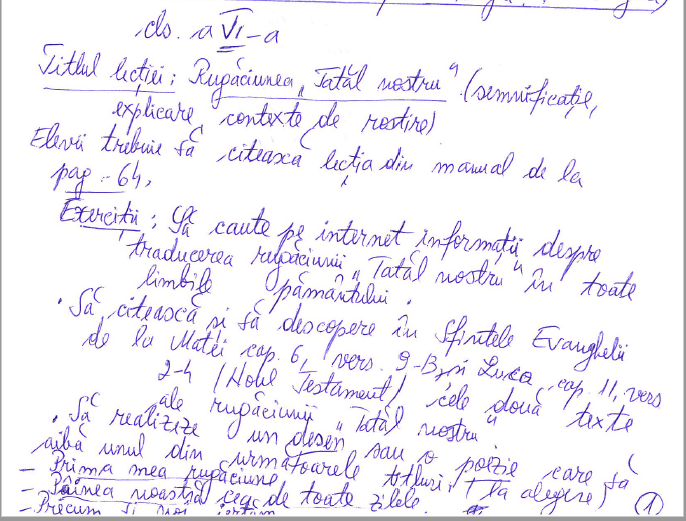 cls. a VI-a
Titlul lecției: Rugăciunea „Tatăl nostru" (semnificație,
explicare, contexte de rostire)
Elevii trebuie să citească lecția din manual de la
pag. 64,
Exerciții: Să caute pe internet informații despre
traducerea rugăciunii „Tatăl nostru" în toate
limbile pământului.
• Să citească și să descopere în Sfintele Evanghelii
de la Matei cap. 6, vers. 9-13 și Luca cap. 11, vers
2-4 (Noul Testament) cele două texte
ale rugăciunii „Tatăl nostru"
• Să realizeze un desen sau o poezie care să
aibă unul din următoarele titluri: (la alegere)
- Prima mea rugăciune
- Pâinea noastră cea de toate zilele
- Precum și noi iertăm
(1)